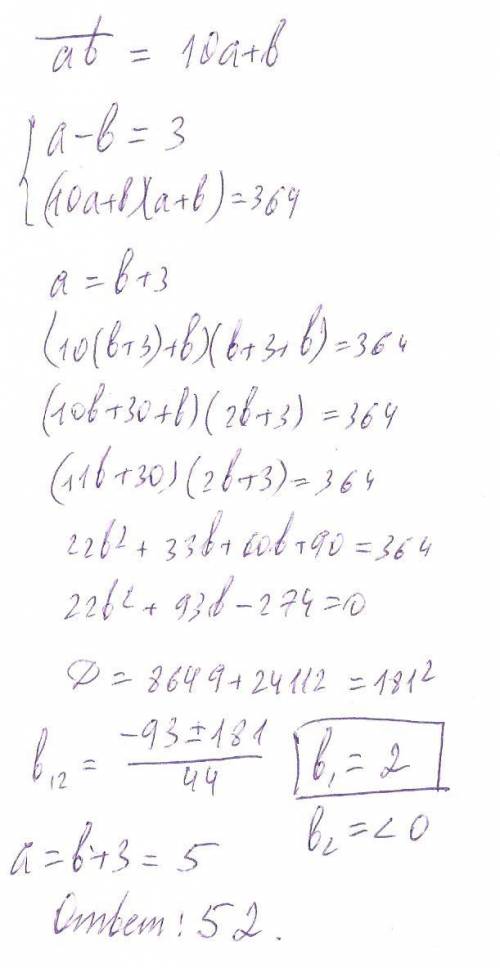 a̅b̅ = 10a+b
a-b = 3
(10a+b)(a+b) = 364
a = b+3
(10(b+3)+b)(b+3+b) = 364
(10b+30+b)(2b+3) = 364
(11b+30)(2b+3) = 364
22b² + 33b + 60b + 90 = 364
22b² + 93b - 274 = 0
D = 8649 + 24112 = 181²
b₁₂ = (-93 ± 181)/44 b₁ = 2
b₂ = < 0
a = b+3 = 5
Ответ: 52.